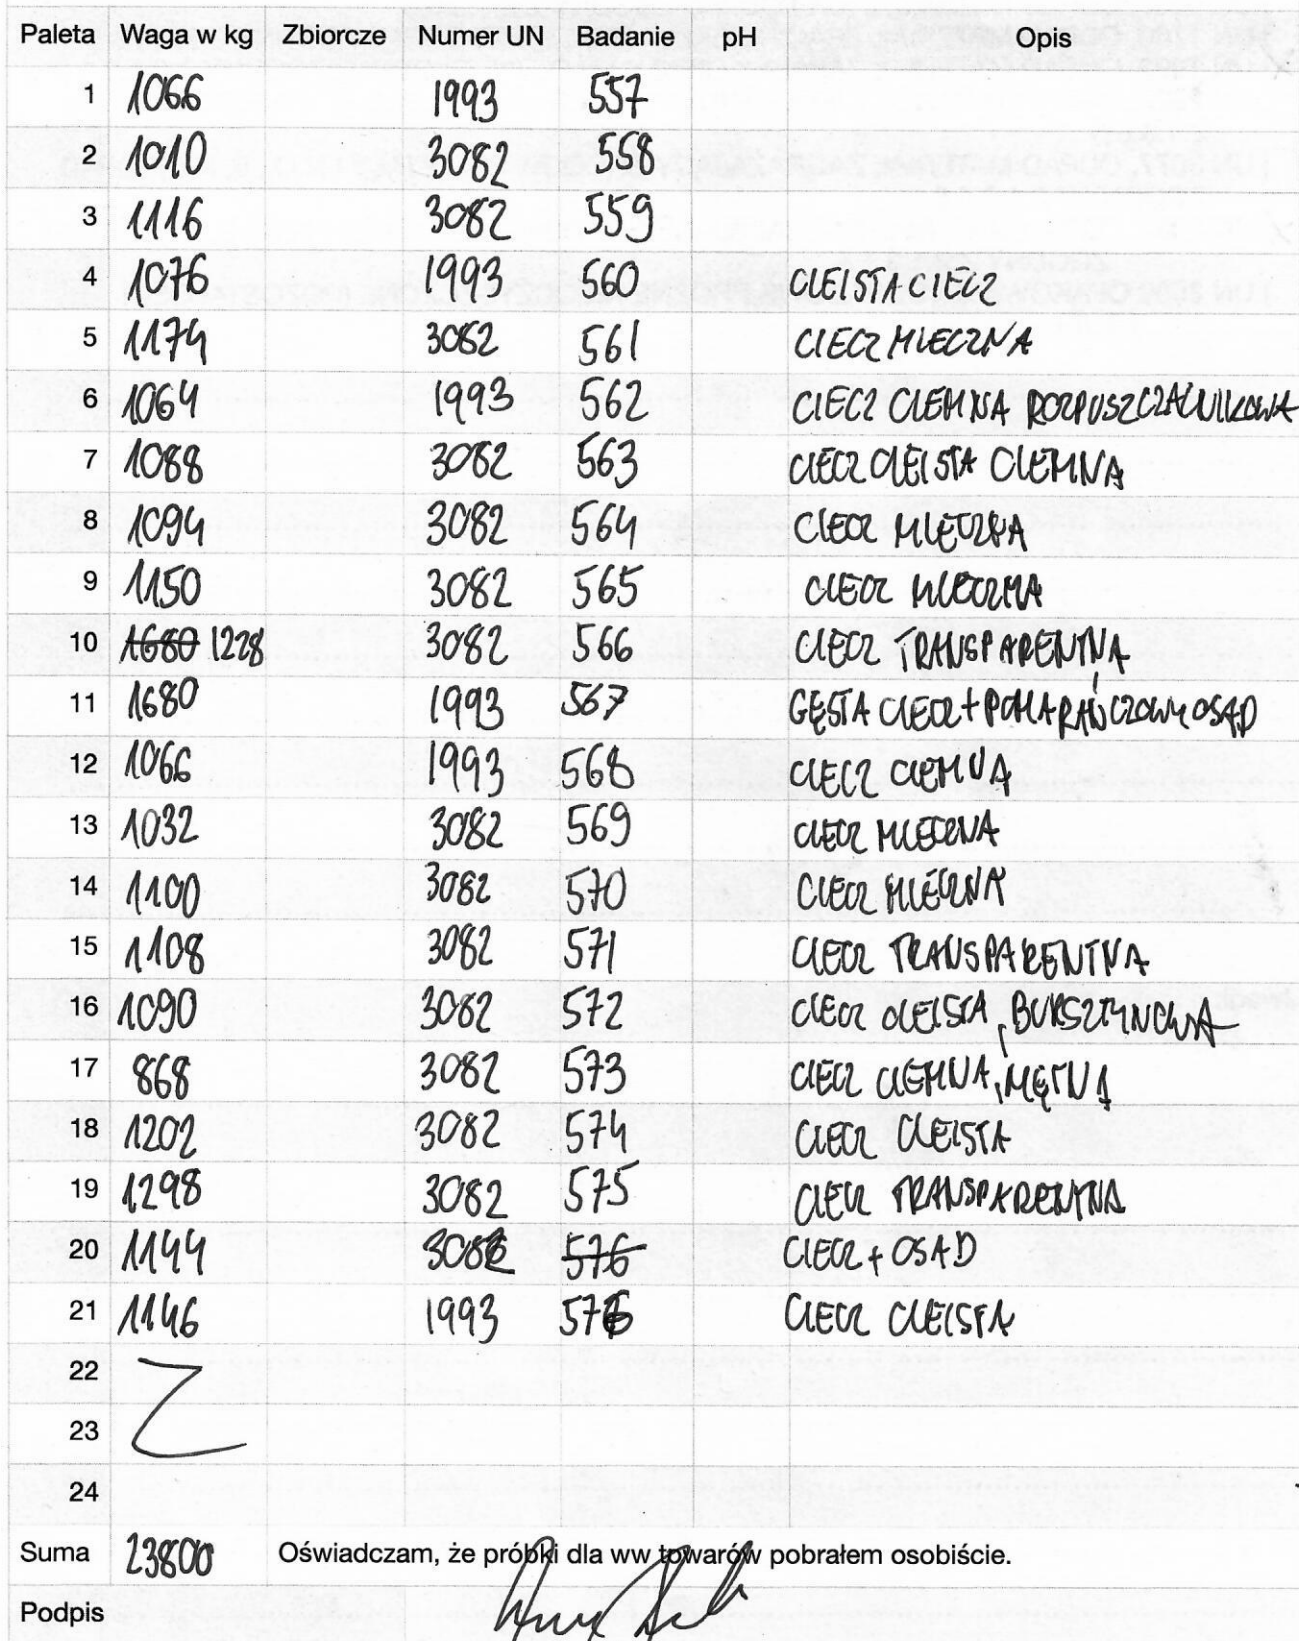 Paleta Waga w kg Zbiorcze Numer UN Badanie pH Opis
1 1066 1993 557
2 1010 3082 558
3 1116 3082 559
4 1076 1993 560 OLEISTA CIECZ
5 1174 3082 561 CIECZ MLECZNA
6 1064 1993 562 CIECZ CIEMNA ROZPUSZCZALNIKOWA
7 1088 3082 563 CIECZ OLEISTA CIEMNA
8 1094 3082 564 CIECZ MLECZNA
9 1150 3082 565 CIECZ MLECZNA
10 1680 1228 3082 566 CIECZ TRANSPARENTNA
11 1680 1993 567 GĘSTA CIECZ + POMARAŃCZOWY OSAD
12 1066 1993 568 CIECZ CIEMNA
13 1032 3082 569 CIECZ MLECZNA
14 1100 3082 570 CIECZ MLECZNA
15 1108 3082 571 CIECZ TRANSPARENTNA
16 1090 3082 572 CIECZ OLEISTA, BURSZTYNOWA
17 868 3082 573 CIECZ CIEMNA, MĘTNA
18 1202 3082 574 CIECZ OLEISTA
19 1298 3082 575 CIECZ TRANSPARENTNA
20 1144 3082 576 CIECZ + OSAD
21 1146 1993 576 CIECZ OLEISTA
22
23
24
Suma 23800 Oświadczam, że próbki dla ww towarów pobrałem osobiście.
Podpis